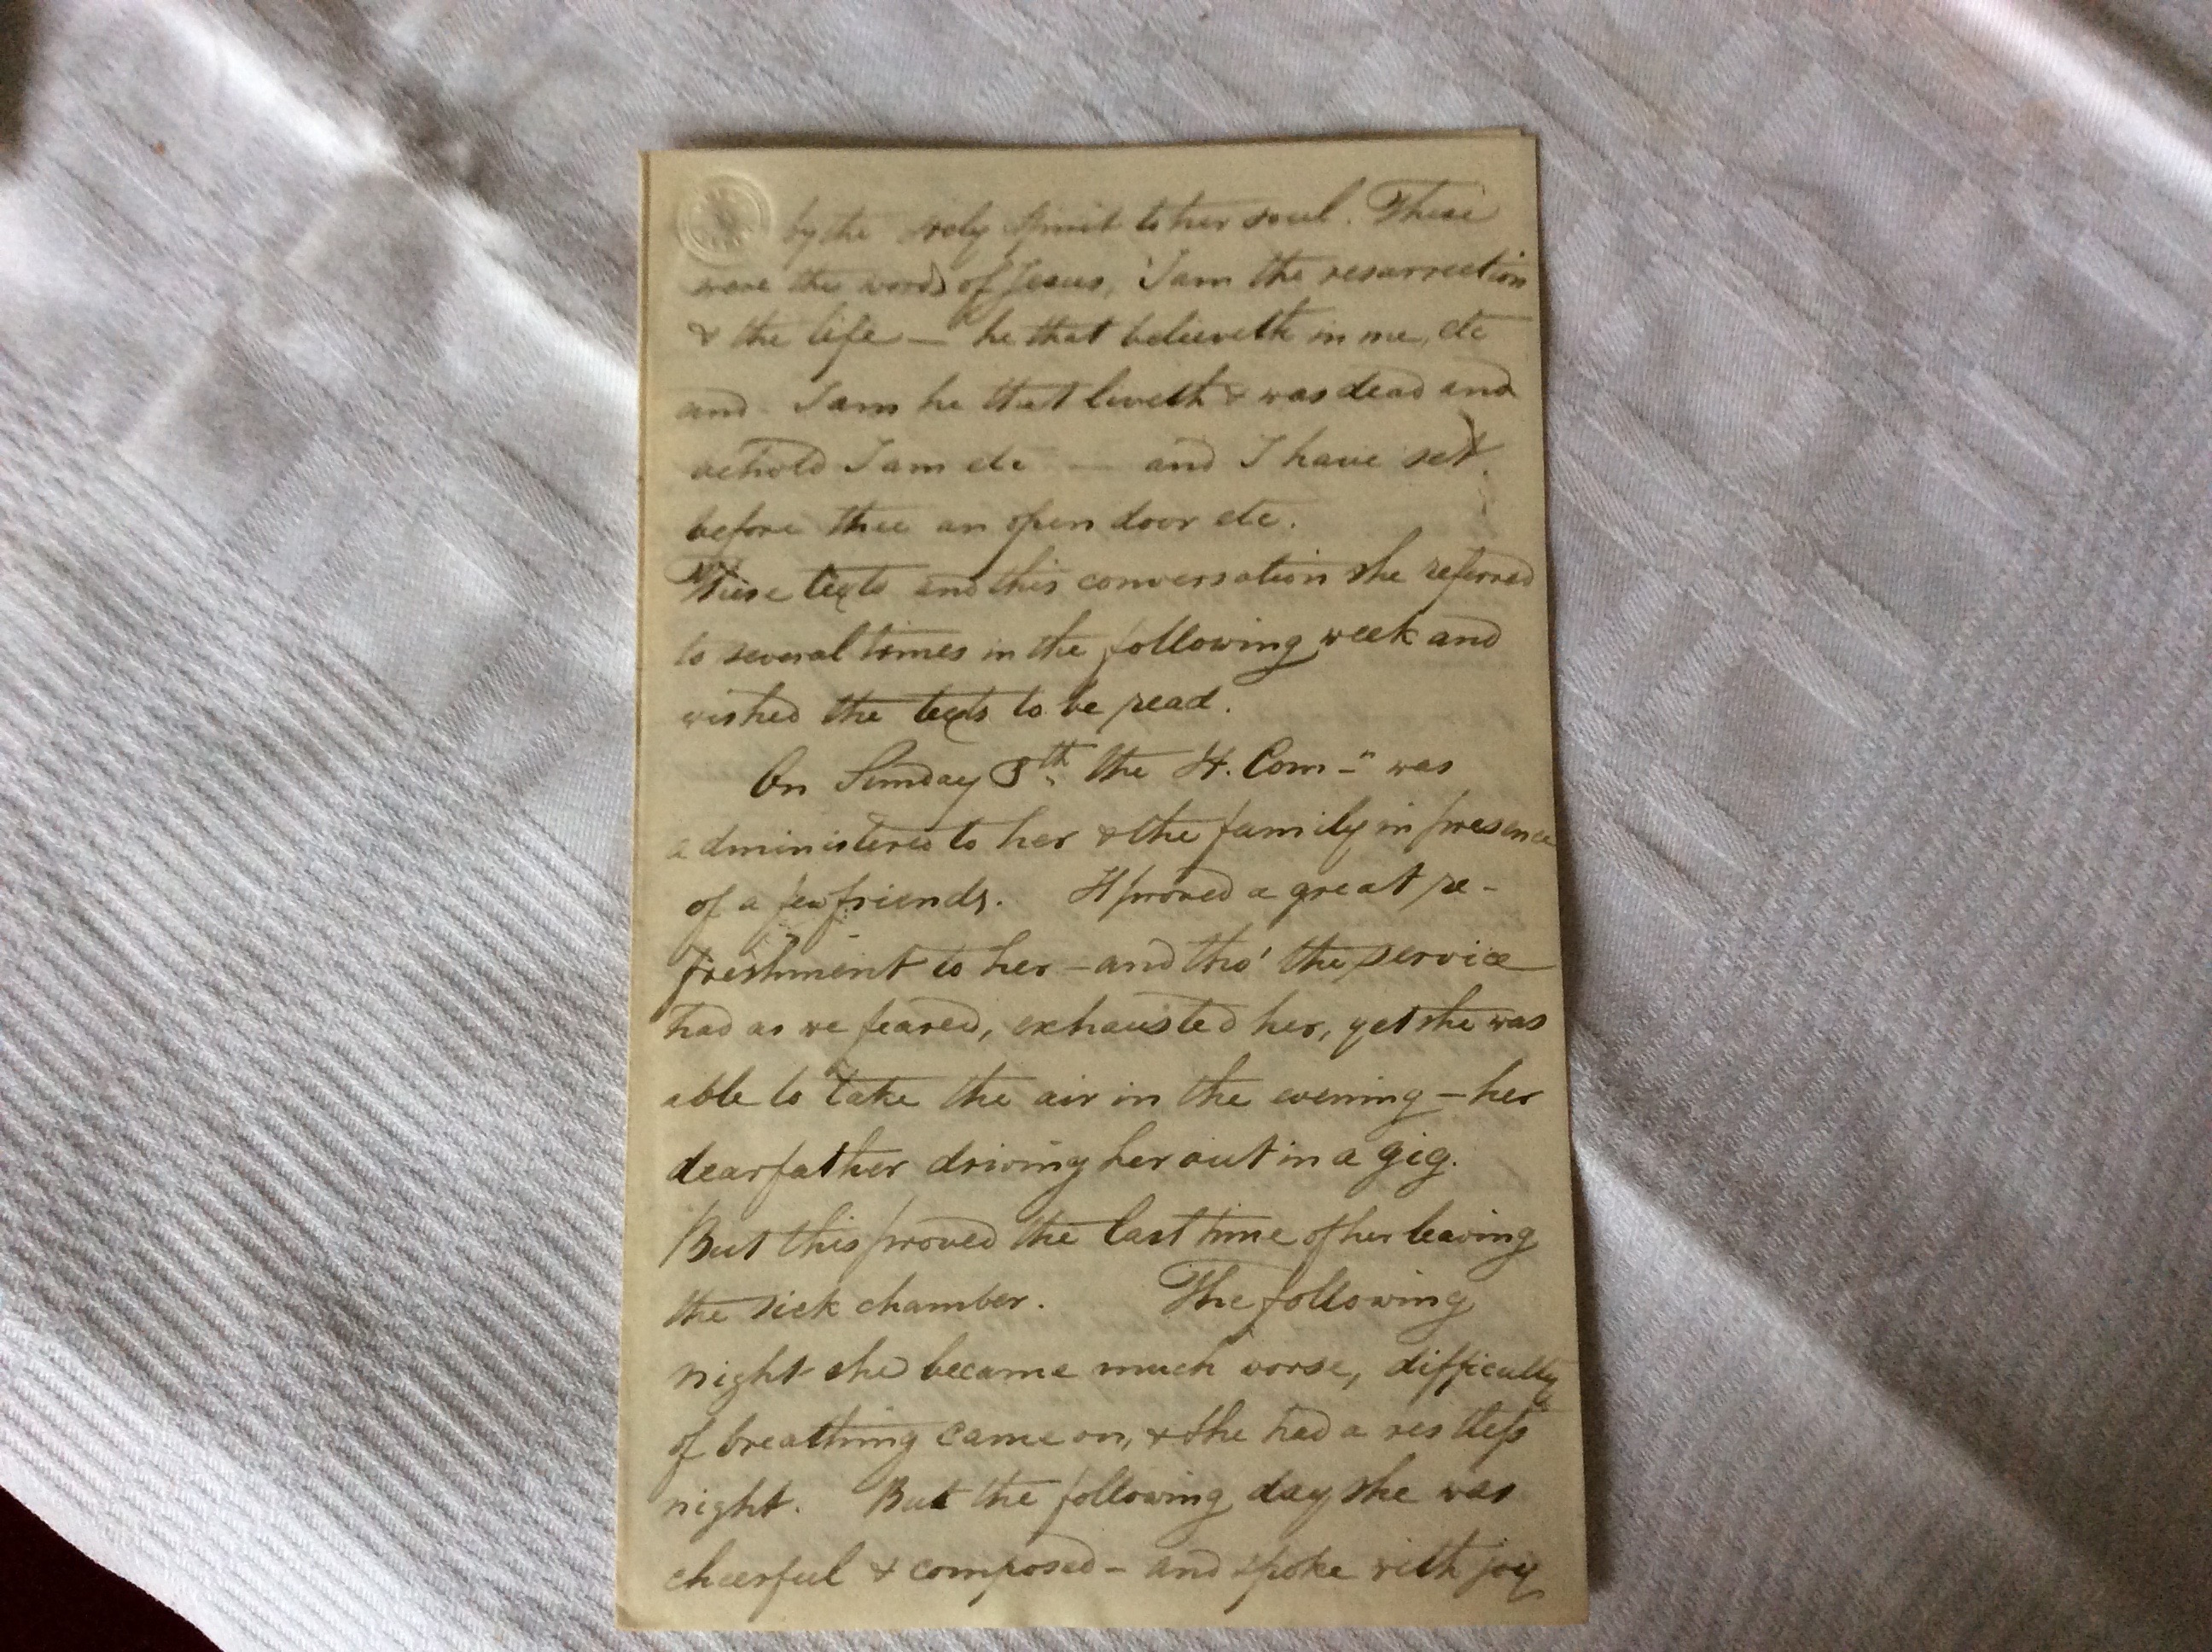 by the Holy Spirit to her soul. These
were the words of Jesus, 'I am the resurrection
& the life — he that believeth in me, etc
and I am he that liveth & was dead and
behold I am etc — and I have set
before thee an open door etc.
These texts and this conversation she referred
to several times in the following week and
wished the texts to be read.
On Sunday 8th the H. Com-n was
administered to her & the family in presence
of a few friends. It proved a great re-
freshment to her – and tho' the service
had as we feared, exhausted her, yet she was
able to take the air in the evening – her
dear father driving her out in a gig.
But this proved the last time of her leaving
the sick chamber. The following
night she became much worse, difficulty
of breathing came on, & she had a restless
night. But the following day she was
cheerful & composed – and spoke with joy